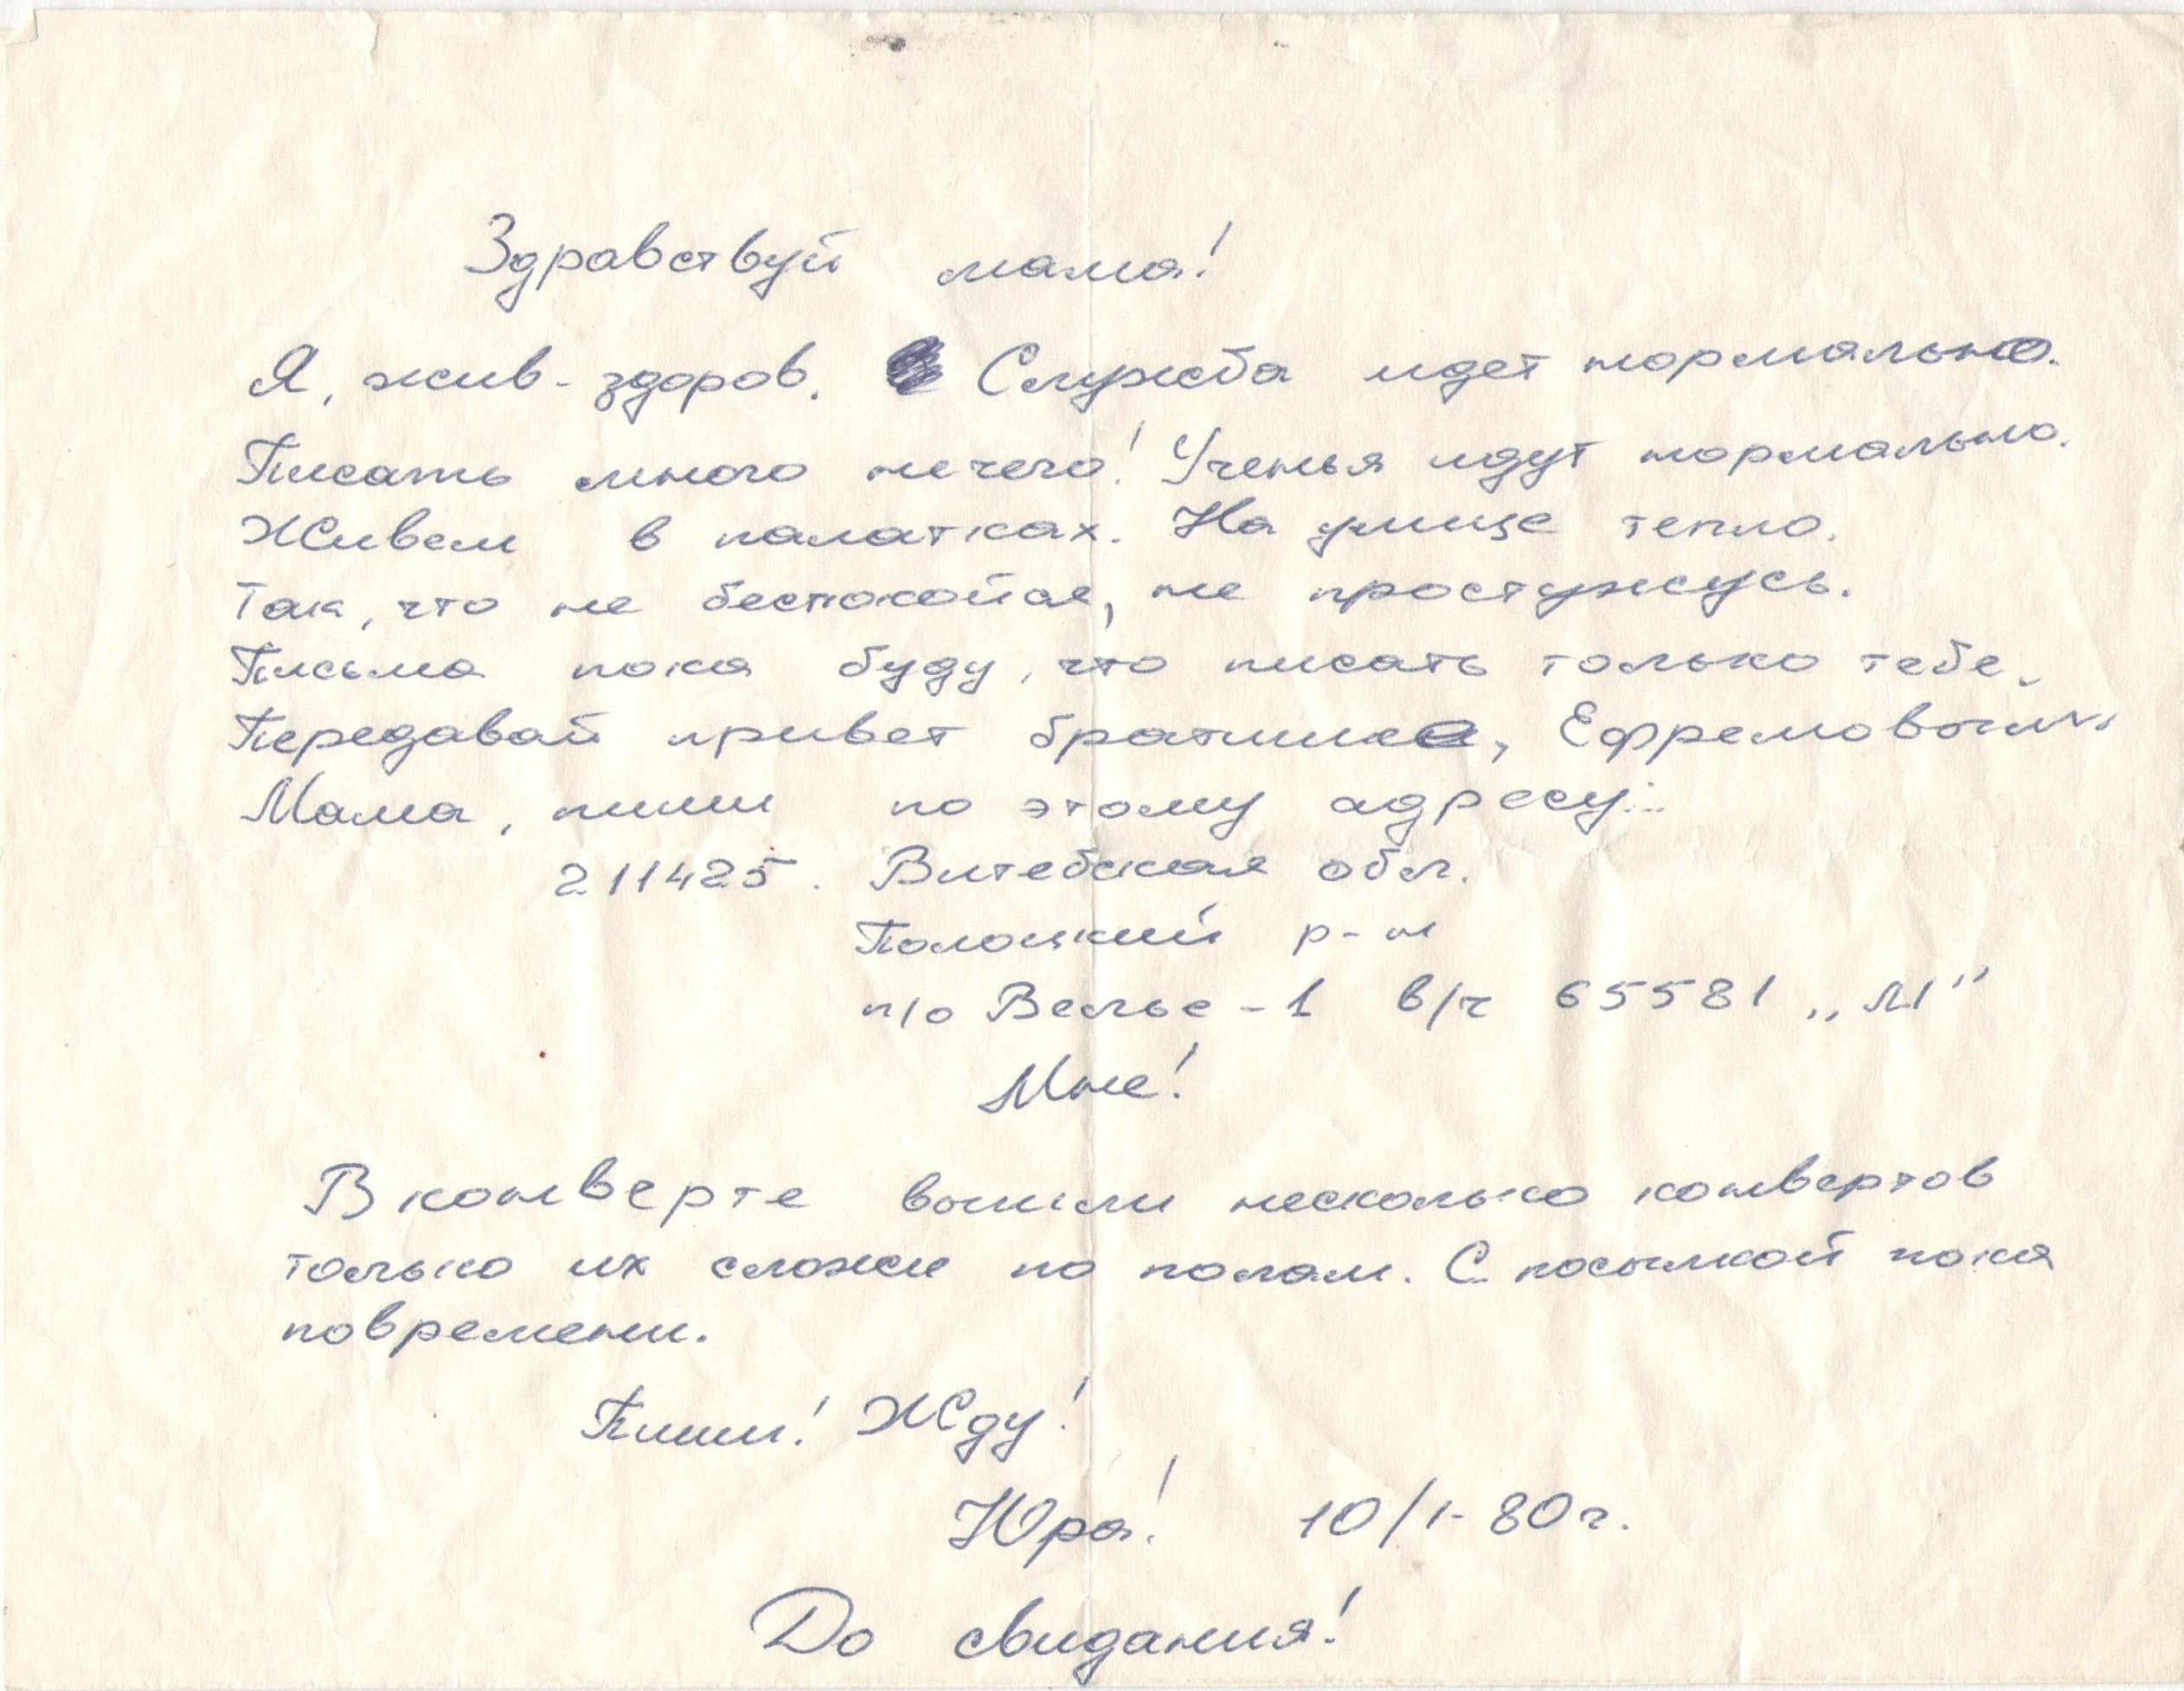 Здравствуй мама!
Я, жив-здоров. Служба идет нормально.
Писать много нечего! Ученья идут нормально.
Живем в палатках. На улице тепло.
Так, что не беспокойся, не простужусь.
Письма пока буду, что писать только тебе.
Передавай привет братишке, Ефремовым.
Мама, пиши по этому адресу:
211425. Витебская обл.
Полоцкий р-н
п/о Велье-1 в/ч 65581 „М"
Мне!
В конверте вышли несколько конвертов
только их сложи по полам. С посылкой пока
повремени.
Пиши! Жду!
Юра! 10/I-80г.
До свидания!